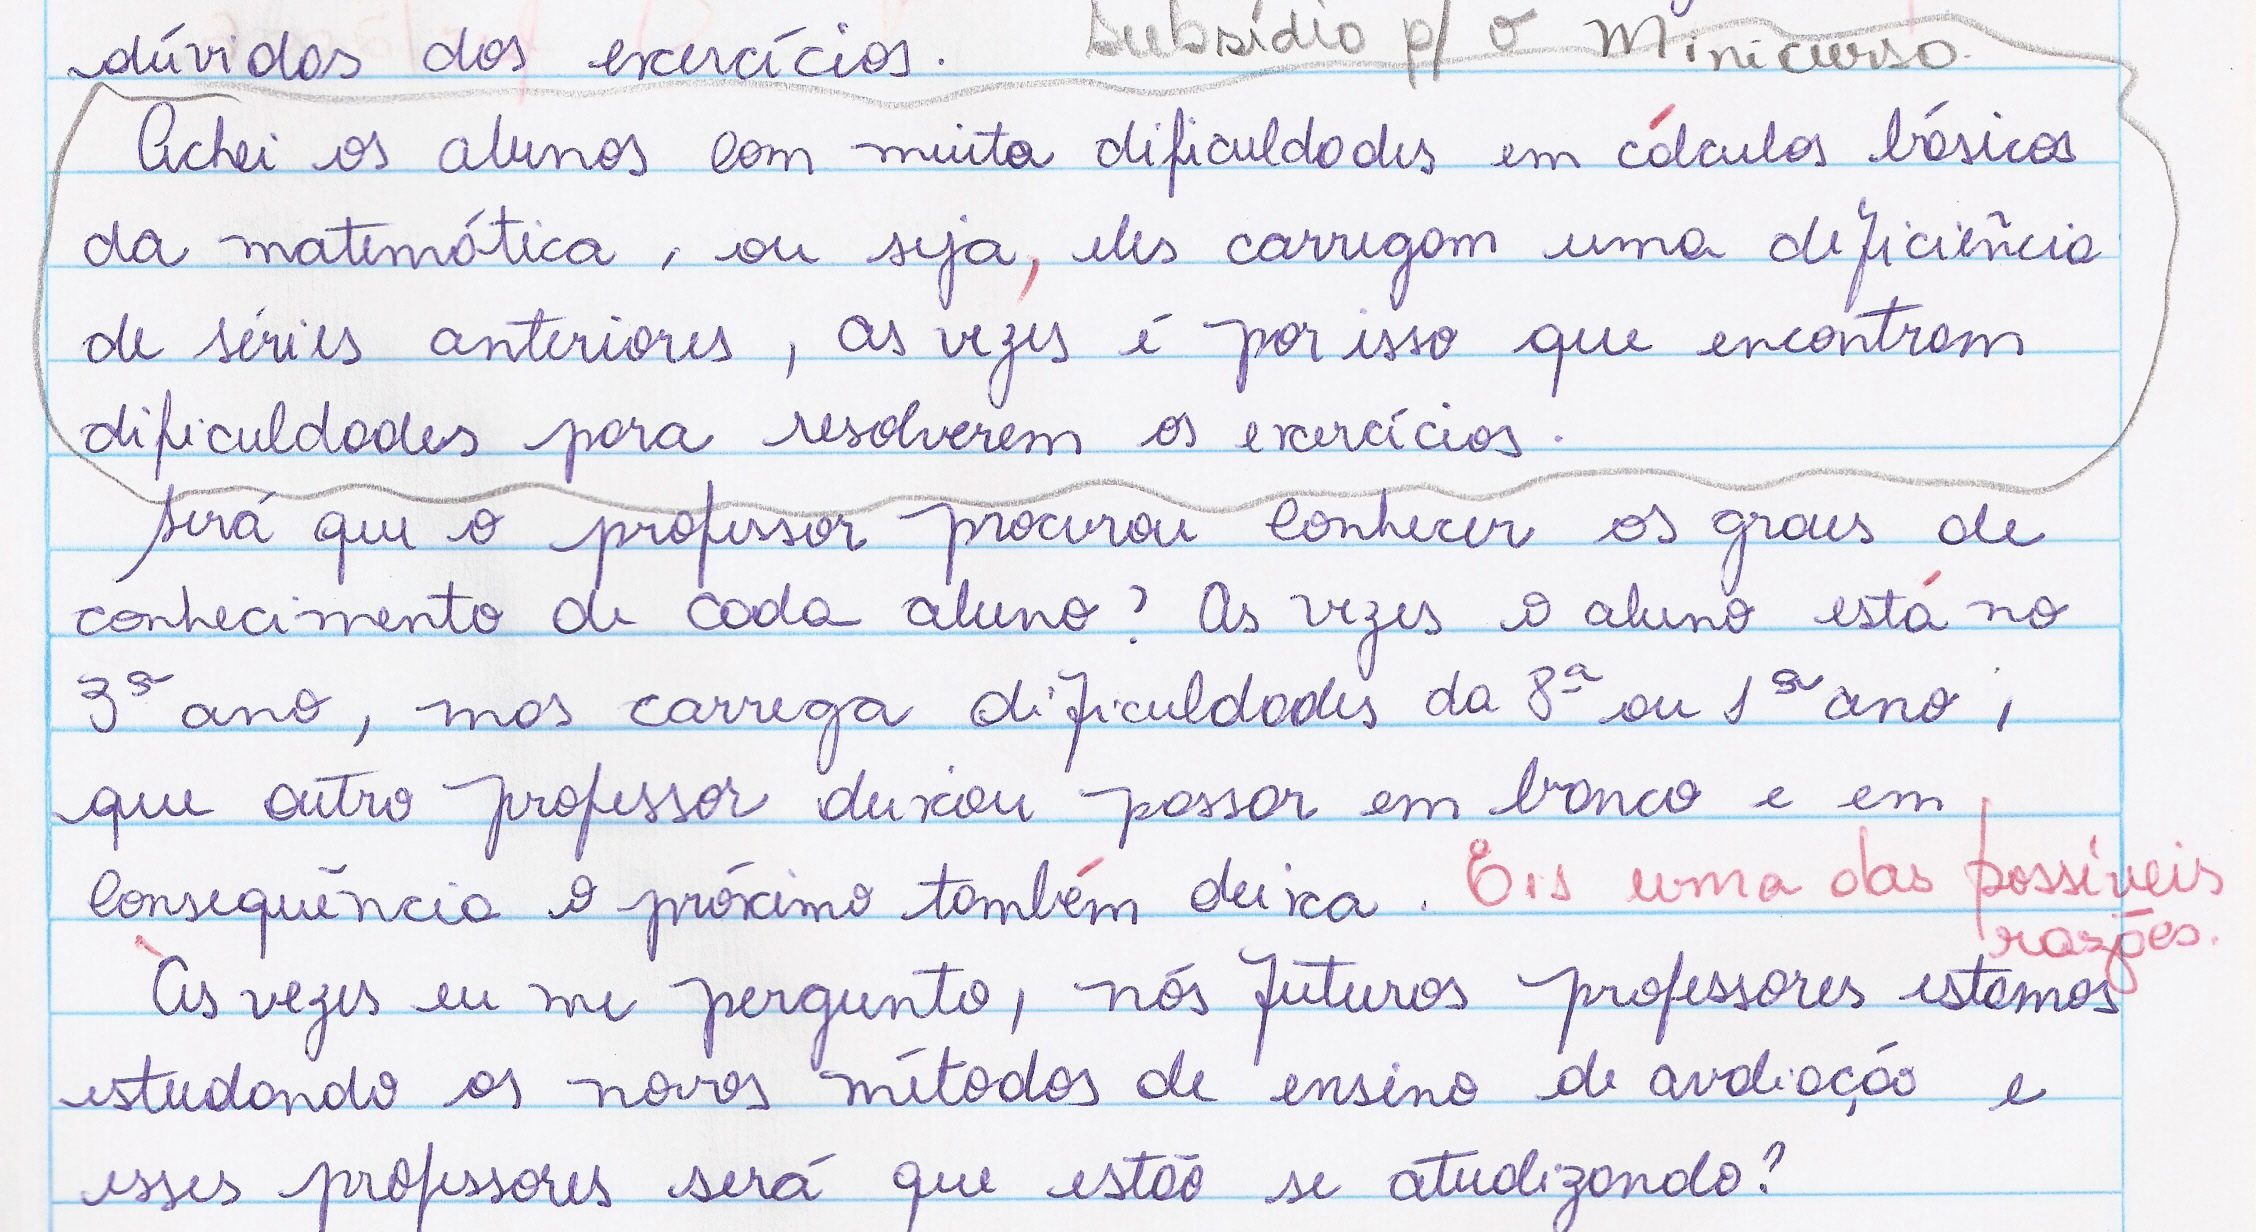 dúvidas dos exercícios. Subsídio p/ o Minicurso.
Achei os alunos com muita dificuldades em cálculos básicos
da matemática, ou seja, eles carregam uma deficiência
de séries anteriores, as vezes é por isso que encontram
dificuldades para resolverem os exercícios.
Será que o professor procurou conhecer os graus de
conhecimento de cada aluno? As vezes o aluno está no
3º ano, mas carrega dificuldades da 8ª ou 1º ano,
que outro professor deixou passar em branco e em
consequência o próximo também deixa. Eis uma das possíveis
razões.
Às vezes eu me pergunto, nós futuros professores estamos
estudando os novos métodos de ensino de avaliação e
esses professores será que estão se atualizando?